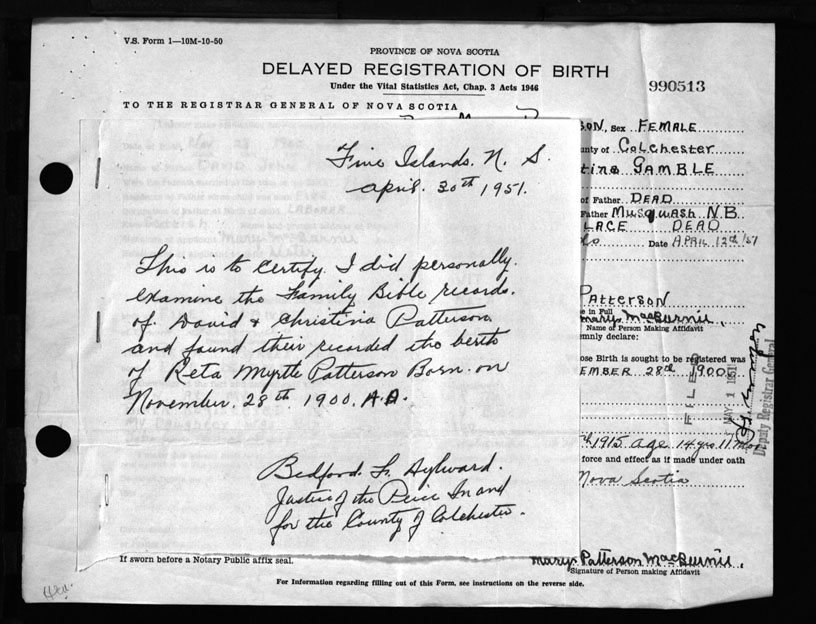 V.S. Form 1—10M-10-50
PROVINCE OF NOVA SCOTIA
DELAYED REGISTRATION OF BIRTH
Under the Vital Statistics Act, Chap. 3 Acts 1946
990513
TO THE REGISTRAR GENERAL OF NOVA SCOTIA
SON, Sex FEMALE
unty of Colchester
tina GAMBLE
of Father DEAD
Father Musquash N.B
LACE DEAD
Date APRIL 12th/51
Patterson
e in Full
Mary MacBurnie
Name of Person Making Affidavit
mnly declare:
ose Birth is sought to be registered was
EMBER 28th 1900
FILED
MAY 1 1951
Deputy Registrar General
1915 age 14 yrs 11 mos
force and effect as if made under oath
Nova Scotia
Five Islands. N. S.
April. 30th 1951.
This is to Certify I did personally.
examine the Family Bible records.
of David & Christina Patterson
and found their recorded the berth
of Reta Myrtle Patterson Born on
November. 28th. 1900. A.D.
Bedford. L. Aylward.
Justice of the Peice In and
for the County of Colchester.
If sworn before a Notary Public affix seal.
Mary Patterson MacBurnie.
Signature of Person making Affidavit
For Information regarding filling out of this Form, see instructions on the reverse side.